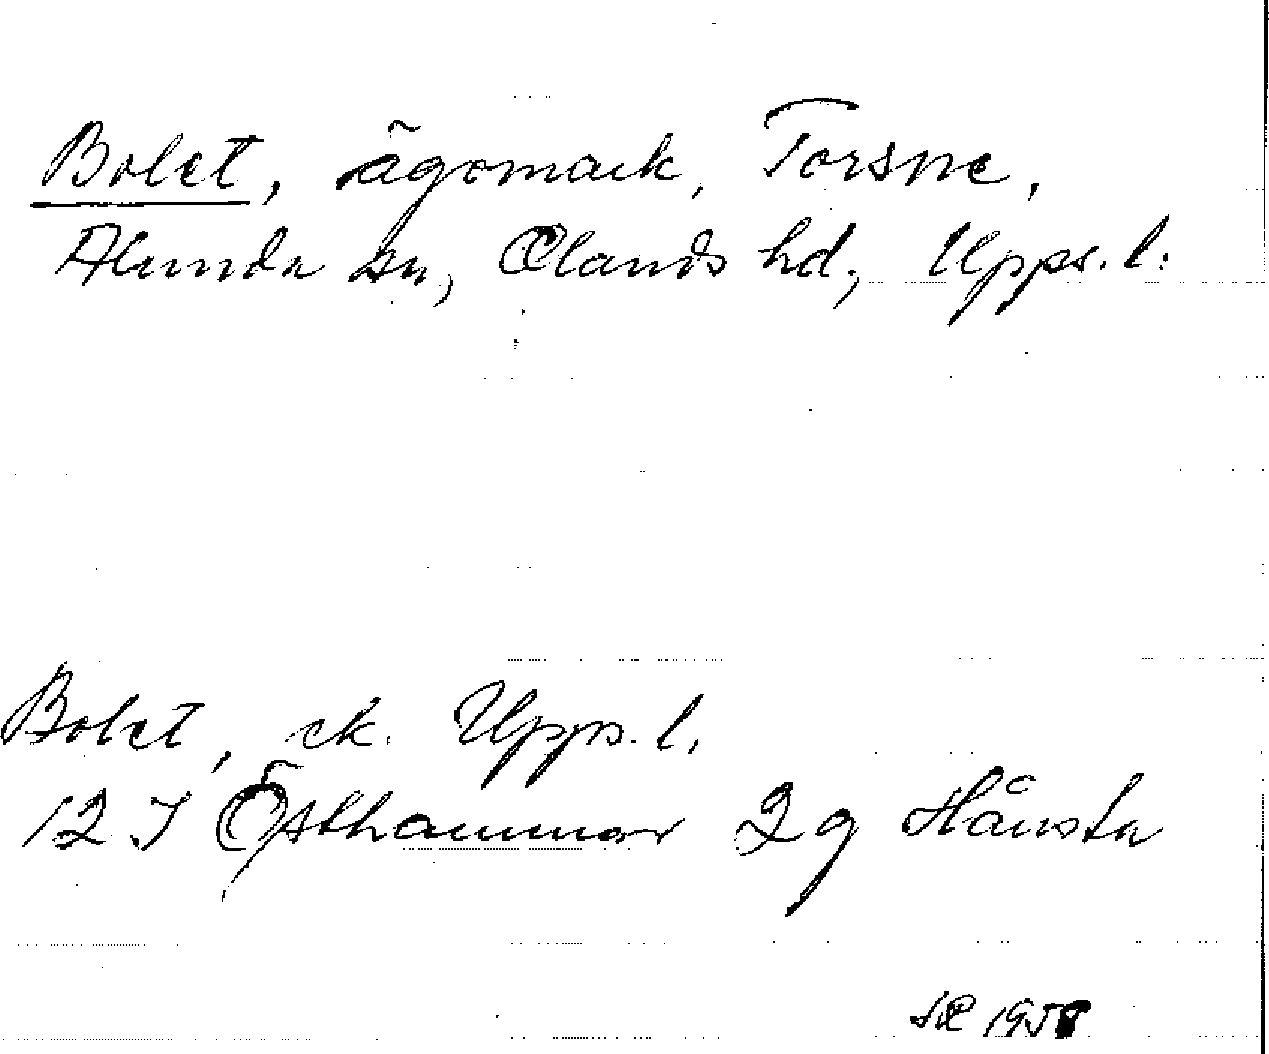 Bolet, ägomark, Torsne,
Alunda sn, Olands hd, Upps. l.
Bolet, ek. Upps. l.
12 I Östhammar 2 g Hånsta
1958